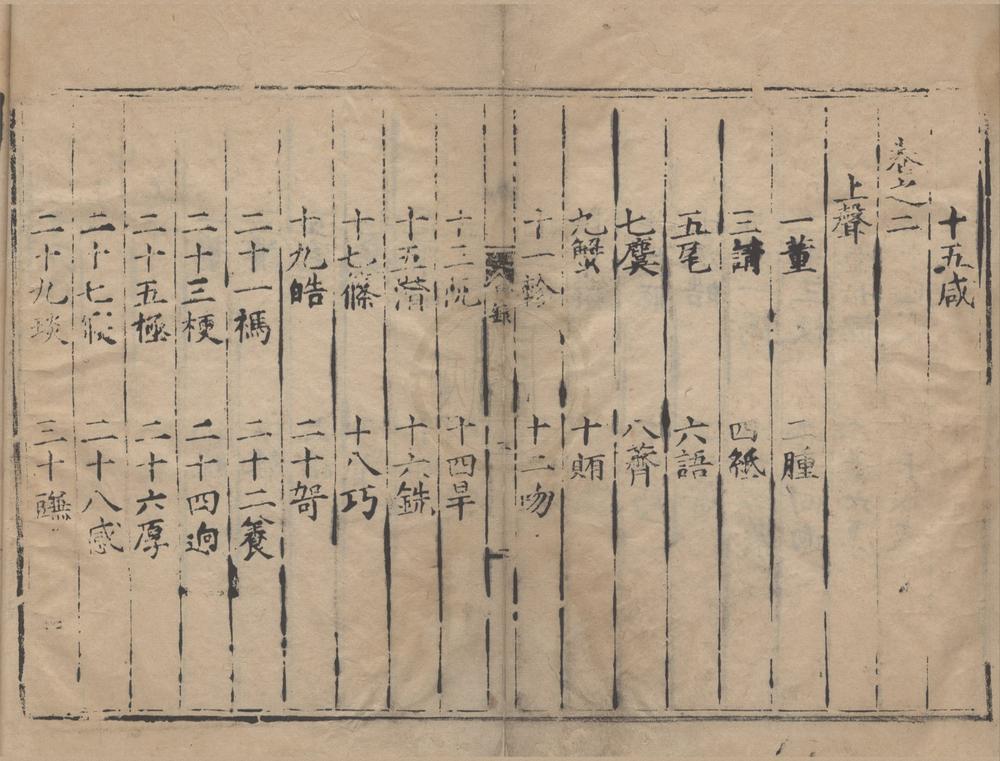 十五咸
卷之二
上聲
一董 二腫
三講 四紙
五尾 六語
七麌 八薺
九蟹 十賄
十一軫 十二吻
目錄
十三阮 十四旱
十五潸 十六銑
十七篠 十八巧
十九皓 二十哿
二十一禡 二十二養
二十三梗 二十四迥
二十五極 二十六厚
二十七寑 二十八感
二十九琰 三十豏